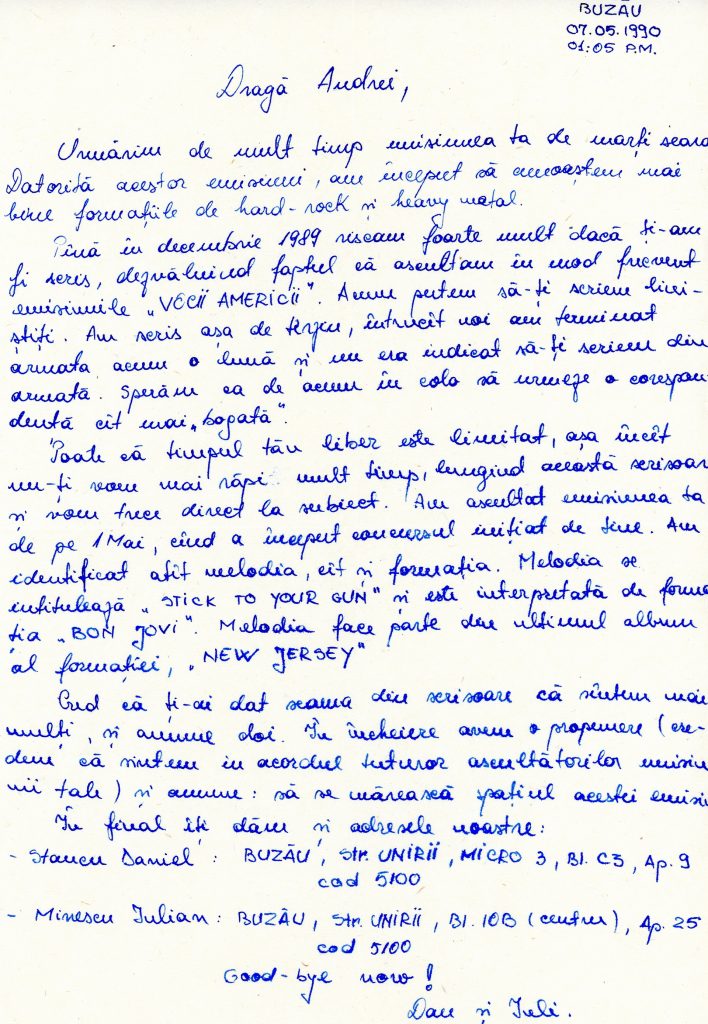 BUZĂU
07.05.1990
01:05 P.M.
Dragă Andrei,
Urmărim de mult timp emisiunea ta de marți seara
Datorită acestor emisiuni, am început să cunoaștem mai
bine formațiile de hard-rock și heavy metal.
Pînă în decembrie 1989 riscam foarte mult dacă ți-am
fi scris, dezvăluind faptul că ascultam în mod frecvent
emisiunile „VOCII AMERICII". Acum putem să-ți scriem lini-
știți. Am scris așa de tîrziu, întrucît noi am terminat
armata acum o lună și nu era indicat să-ți scriem din
armată. Sperăm ca de acum în colo să urmeze o corespon
dență cît mai „bogată".
Poate că timpul tău liber este limitat, așa încît
nu-ți vom mai răpi mult timp, lungind această scrisoar
și vom trece direct la subiect. Am ascultat emisiunea ta
de pe 1 Mai, cînd a început concursul inițiat de tine. Am
identificat atît melodia, cît și formația. Melodia se
intitulează „STICK TO YOUR GUN" și este interpretată de forma
ția „BON JOVI". Melodia face parte din ultimul album
al formației, „NEW JERSEY"
Cred că ți-ai dat seama din scrisoare că sîntem mai
mulți, și anume doi. În încheiere avem o propunere (cre-
dem că sîntem in acordul tuturor ascultătorilor emisiu
nii tale) și anume: să se mărească spațiul acestei emisiu
În final îți dăm și adresele noastre:
- Stancu Daniel: BUZĂU, Str. UNIRII, MICRO 3, Bl. C3, Ap. 9
cod 5100
- Minescu Iulian: BUZĂU, Str. UNIRII, Bl. 10B (centru), Ap. 25
cod 5100
Good-bye now!
Dan și Iuli.